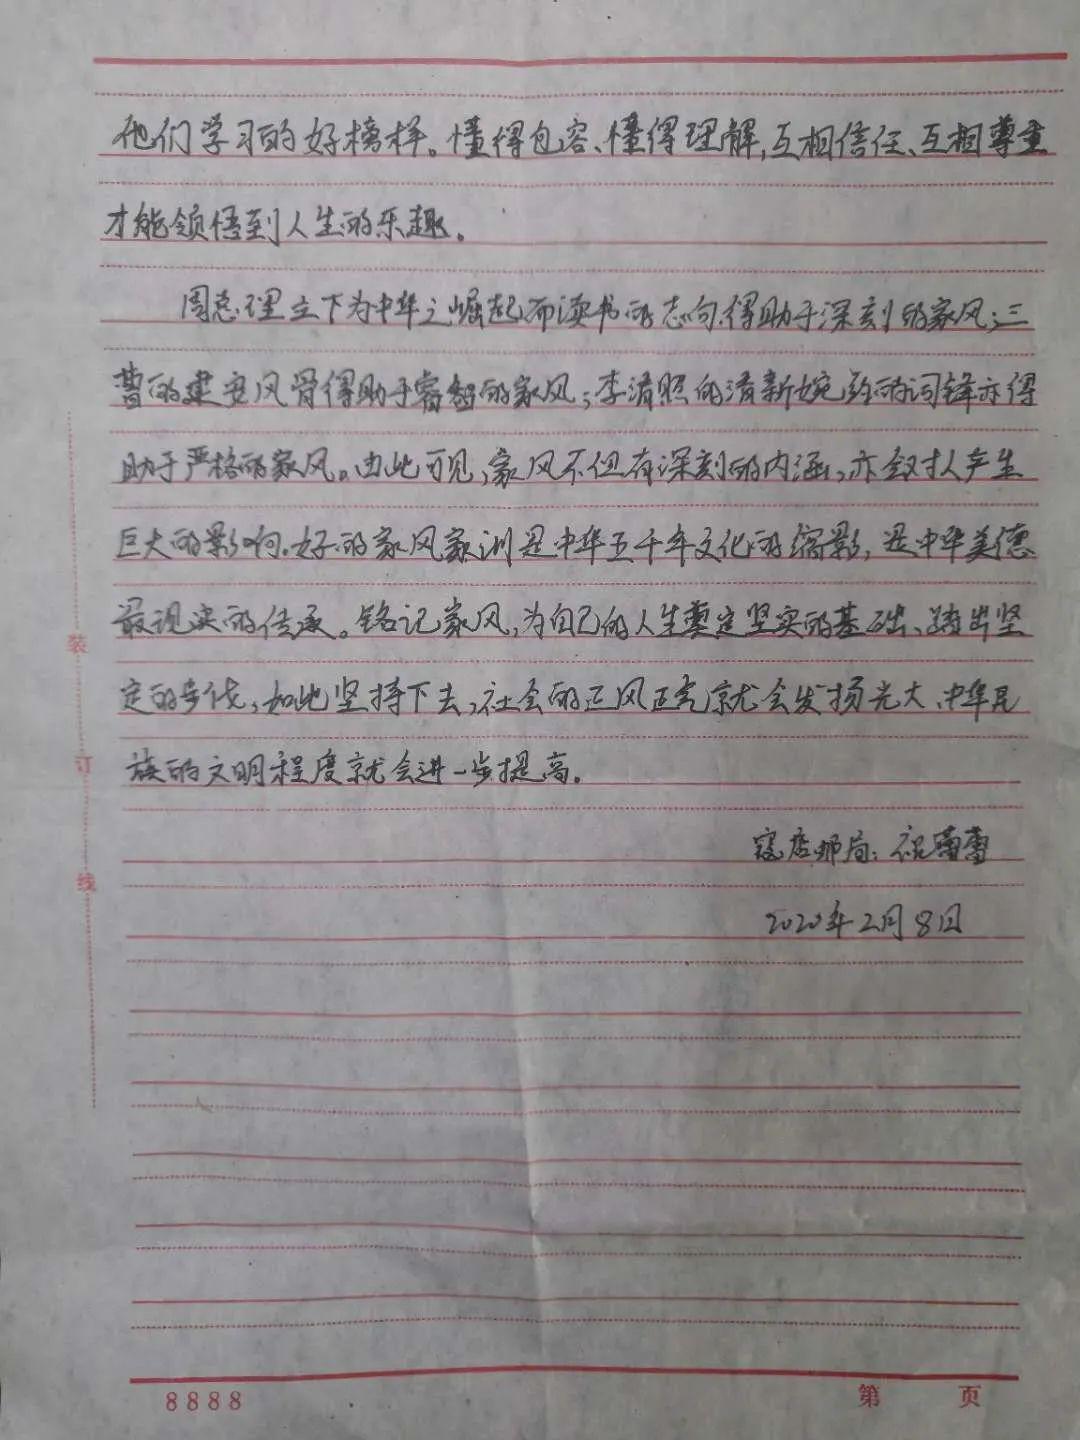 他们学习的好榜样。懂得包容、懂得理解,互相信任、互相尊重
才能领悟到人生的乐趣。
周总理立下为中华之崛起而读书的志向得助于深刻的家风;三
曹的建安风骨得助于睿智的家风;李清照的清新婉约的词锋亦得
助于严格的家风。由此可见,家风不但有深刻的内涵,亦会对人产生
巨大的影响。好的家风家训是中华五千年文化的缩影,是中华美德
最现实的传承。铭记家风,为自己的人生奠定坚实的基础、踏出坚
定的步伐,如此坚持下去,社会的正风正气就会发扬光大、中华民
族的文明程度就会进一步提高。
寇店邮局:祝蕾蕾
2020年2月8日
装
订
线
8888
第 页